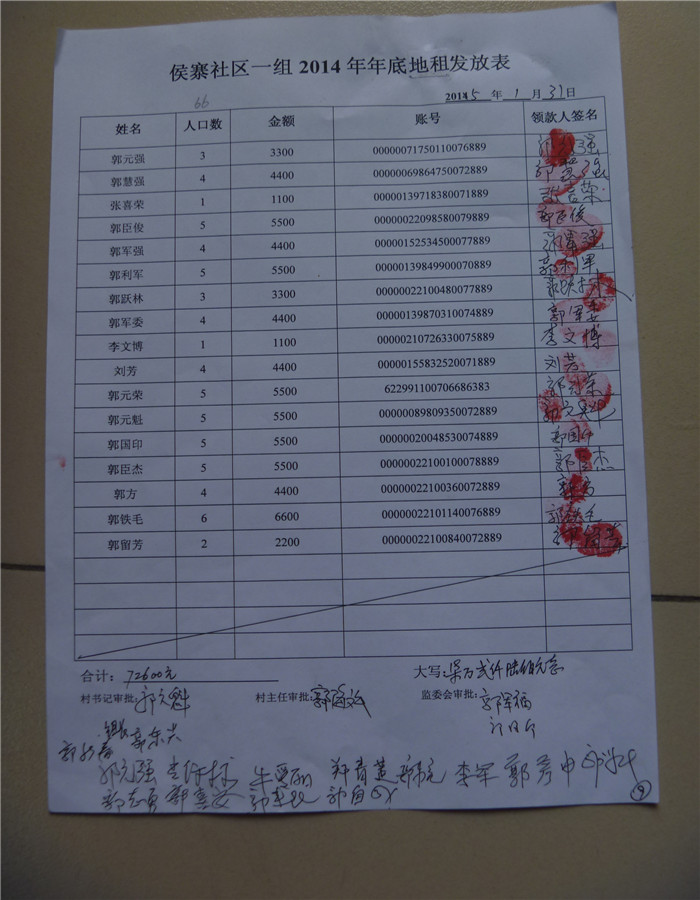 侯寨社区一组 2014 年年底地租发放表
66
2015 年 1 月 31 日
姓名 人口数 金额 账号 领款人签名
郭元强 3 3300 00000071750110076889
郭慧强 4 4400 00000069864750072889 郭慧强
张喜荣 1 1100 00000139718380071889 张喜荣
郭臣俊 5 5500 00000022098580079889 郭臣俊
郭军强 4 4400 00000152534500077889 郭军强
郭利军 5 5500 00000139849900070889 郭利军
郭跃林 3 3300 00000022100480077889 郭跃林
郭军委 4 4400 00000139870310074889 郭军委
李文博 1 1100 00000210726330075889 李文博
刘芳 4 4400 00000155832520071889 刘芳
郭元荣 5 5500 622991100706686383 郭元荣
郭元魁 5 5500 00000089809350072889
郭国印 5 5500 00000020048530074889 郭国印
郭臣杰 5 5500 00000022100100078889 郭臣杰
郭方 4 4400 00000022100360072889 郭方
郭铁毛 6 6600 00000022101140076889 郭铁毛
郭留芳 2 2200 00000022100840072889
合计: 72600元 大写: 柒万贰仟陆佰元
村书记审批: 郭元魁 村主任审批: 监委会审批:
郭东兴
郭元强 李军
郭志勇
9